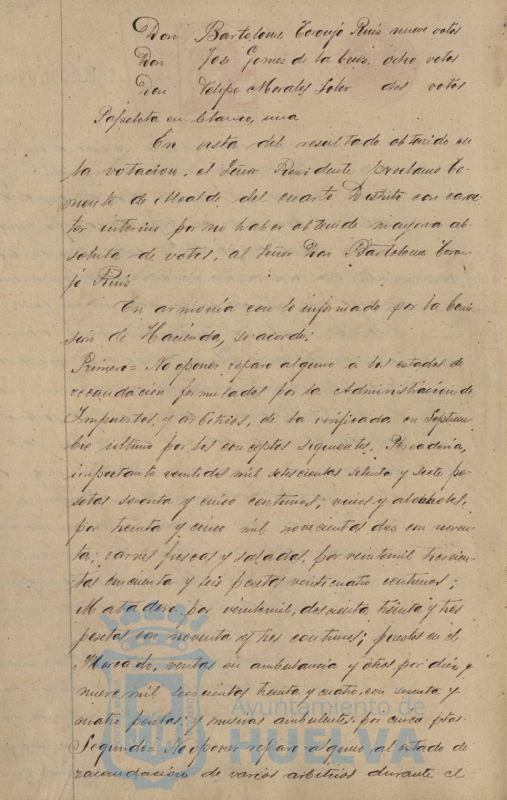 Don Bartolome Toronjo Ruis nueve votos
Don Jose Gomez de la Corte, ocho votos
Don Felipe Morales Soler dos votos
Papeleta en blanco, una
En vista del resultado obtenido en
la votacion, el Señor Presidente proclamo te-
niente de Alcalde del cuarto Distrito con carac-
ter interino por no haber obtenido mayoria ab-
soluta de votos, al Señor Don Bartolome Toron-
jo Ruis
En armonia con lo informado por la Comi-
sion de Hacienda, se acordo:
Primero= No oponer reparo alguno á los estados de
recaudacion formulados por la Administracion de
Impuestos y arbitrios, de la verificada en Septiem-
bre último por los conceptos siguientes. Pescaderia,
importante veintidos mil setecientas setenta y siete pe-
setas y cinco centimos; vinos y alcoholes,
por treinta y cinco mil novecientas dos con noven-
ta; carnes frescas y saladas, por veintemil trescien-
tas cincuenta y seis pesetas veinticuatro centimos;
Matadero, por veintemil, doscientas treinta y tres
pesetas con noventa y tres centimos; puestos en el
Mercado, ventas en ambulancia y otros, por diez y
nueve mil seiscientas treinta y cuatro, con sesenta y
cuatro pesetas; y musicas ambulantes, por cinco ptas.
Segundo= No oponer reparo alguno al estado de
recaudacion de varios arbitrios durante el
Ayuntamiento de
HUELVA